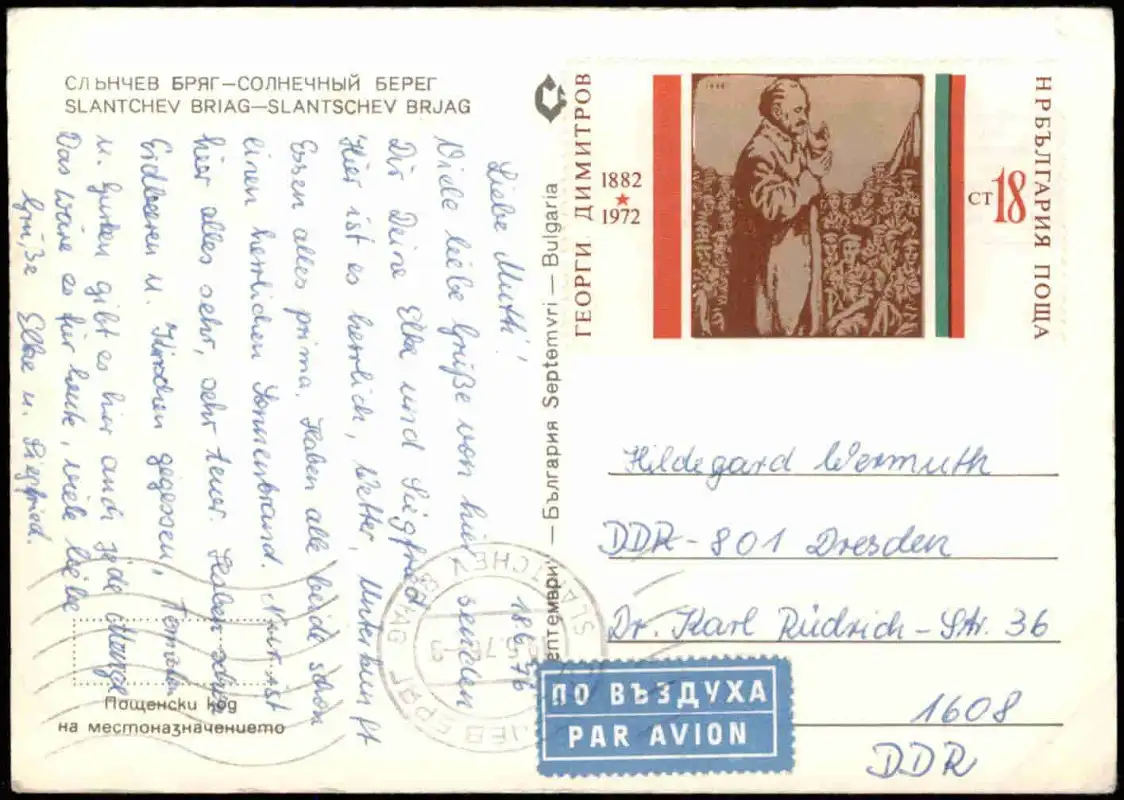 СЛЪНЧЕВ БРЯГ—СОЛНЕЧНЫЙ БЕРЕГ
SLANTCHEV BRIAG—SLANTSCHEV BRJAG
18.6.76
Liebe Mutti!
Viele liebe Grüße von hier senden
Dir Deine Elke und Siegfried.
Hier ist es herrlich, Wetter, Unterkunft
Essen alles prima. Haben alle beide schon
einen herrlichen Sonnenbrand. Nur ist
hier alles sehr, sehr teuer. Haben schon
Erdbeeren u. Kirschen gegessen, Tomaten
u. Gurken gibt es hier auch jede Menge
Das wäre es für heute, viele liebe
Grüße Elke u. Siegfried.
Пощенски код
на местоназначението
септември — България Septemvri — Bulgaria
ГЕОРГИ ДИМИТРОВ
1882
1972
СТ 18
НР БЪЛГАРИЯ ПОЩА
SLANTCHEV BRIAG
БРЯГ
ПО ВЪЗДУХА
PAR AVION
Hildegard Wermuth
DDR-801 Dresden
Dr. Karl Rüdrich-Str. 36
1608
DDR